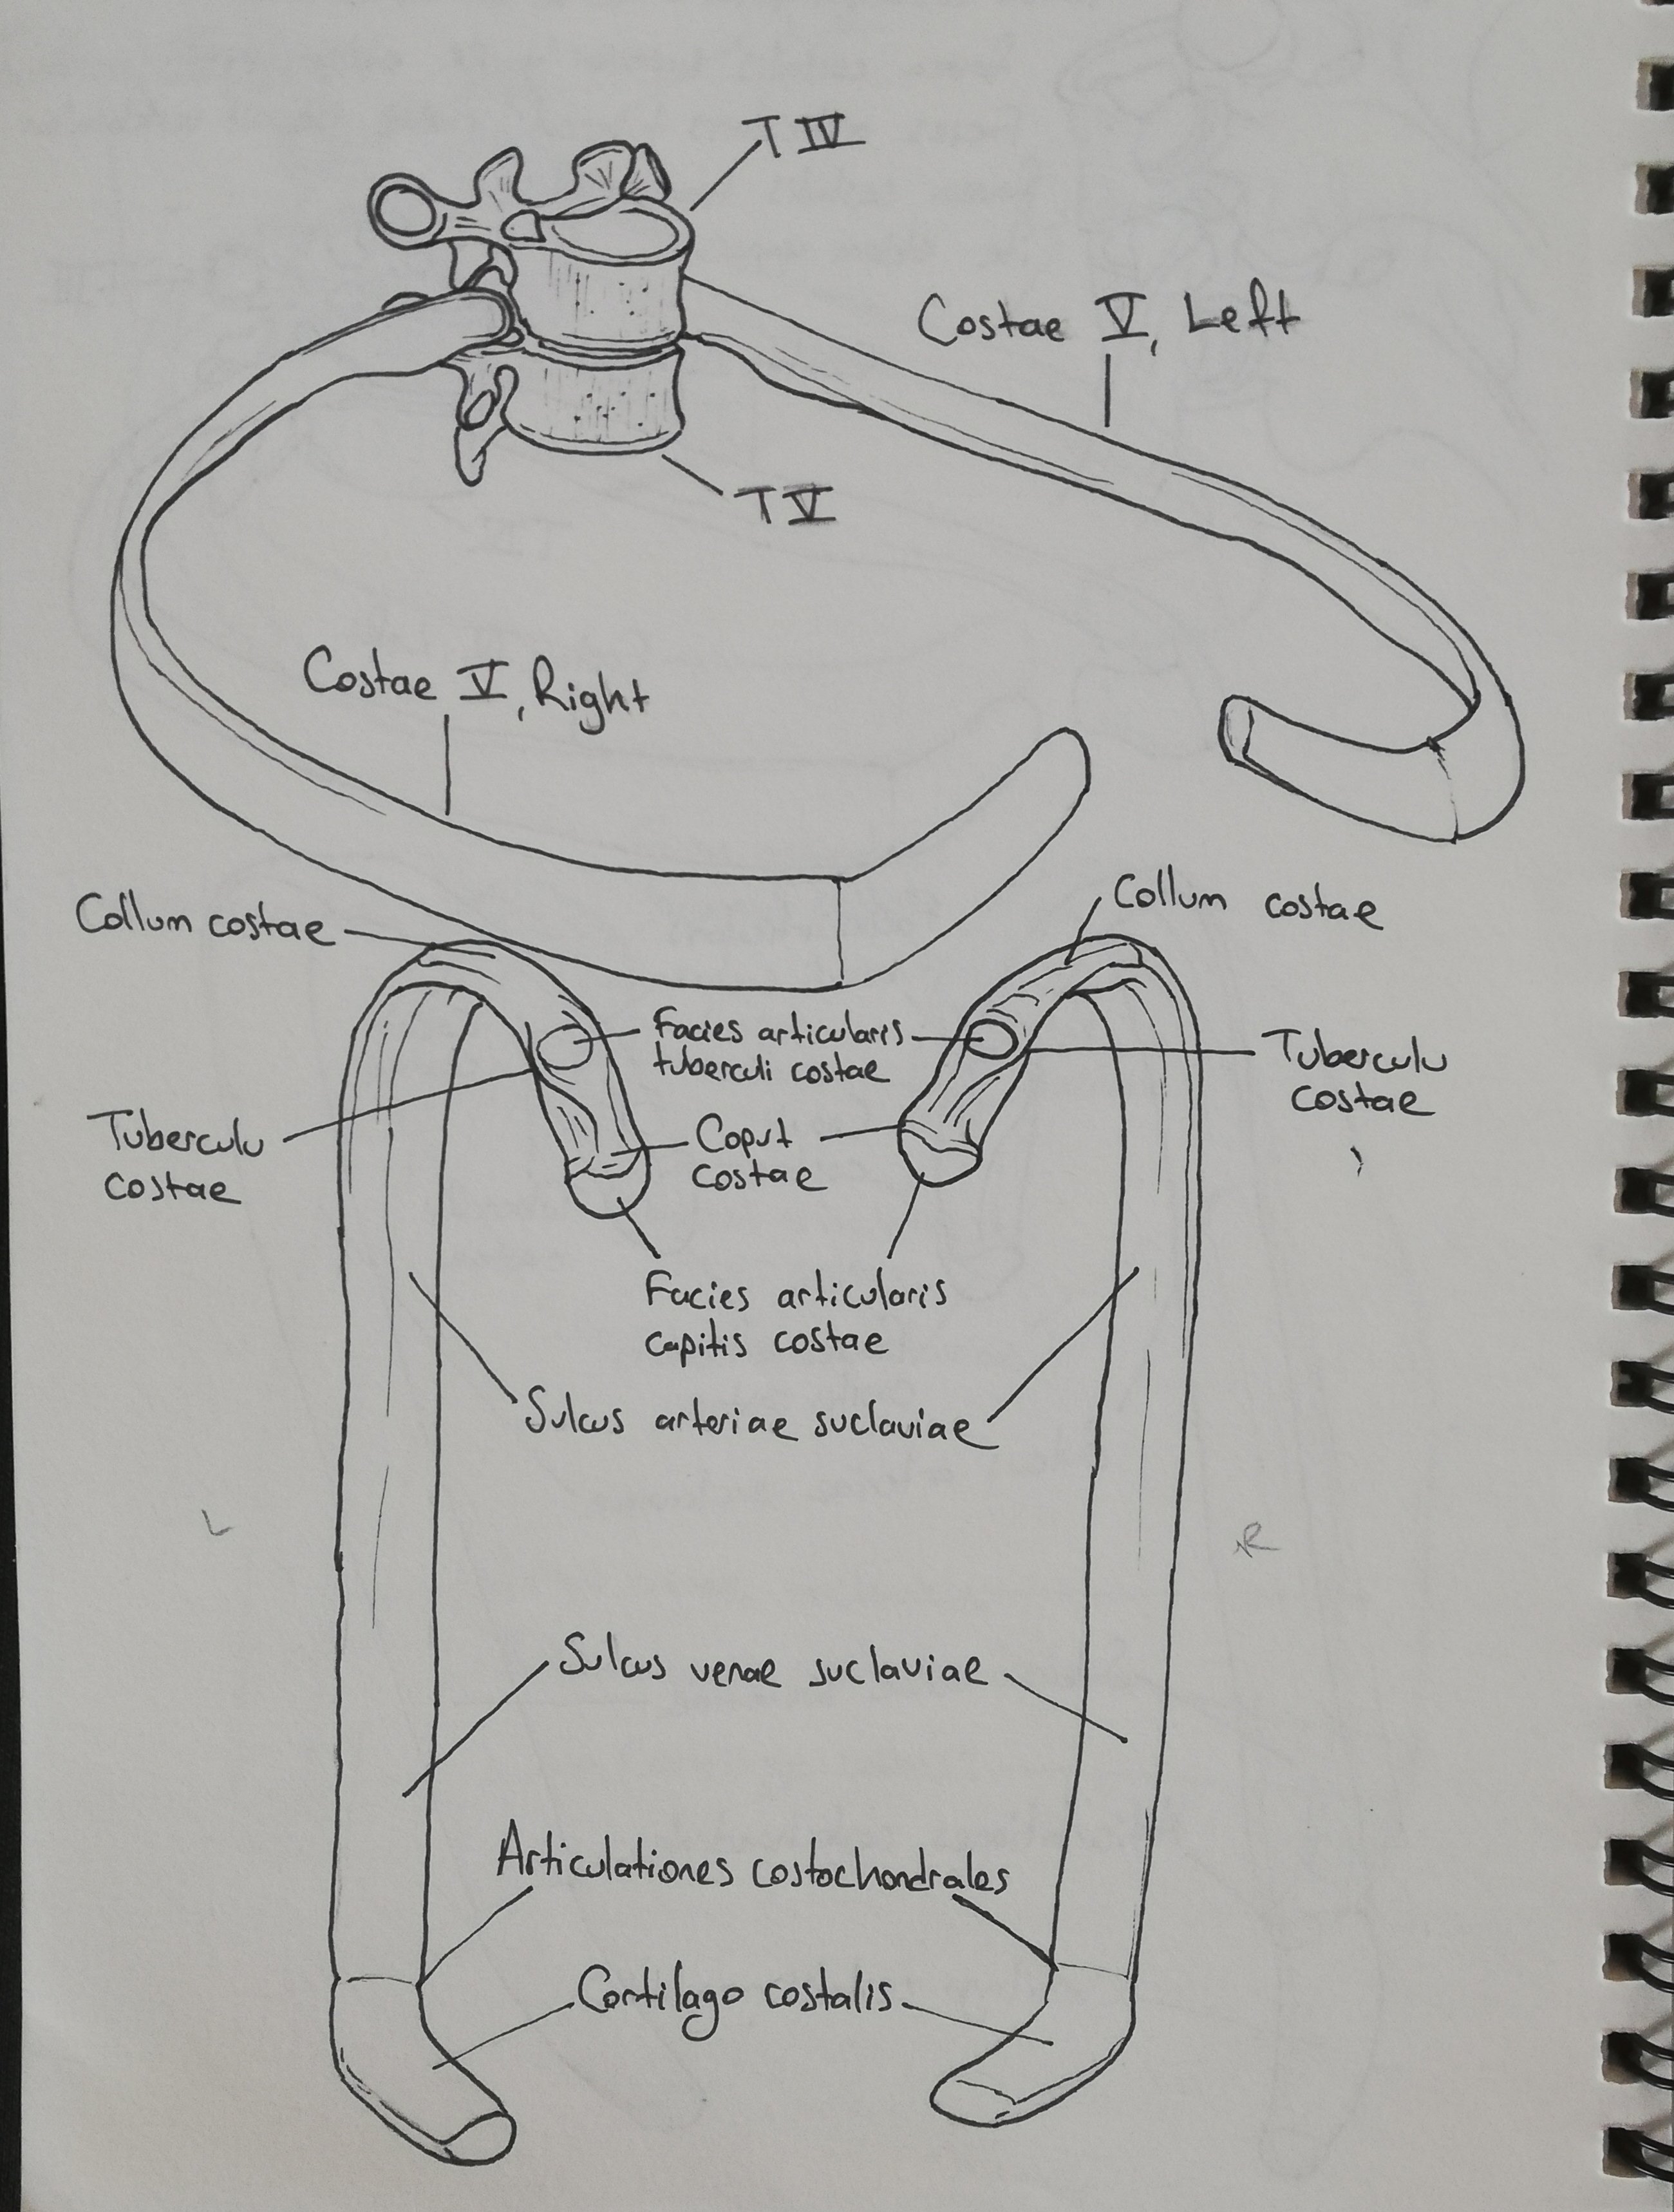 T IV
Costae V, Left
T V
Costae V, Right
Collum costae
Collum costae
Facies articularis
tuberculi costae
Tuberculu
costae
Tuberculu
costae
Coput
costae
Facies articularis
capitis costae
Sulcus arteriae suclaviae
L
R
Sulcus venae suclaviae
Articulationes costochondrales
Cortilago costalis